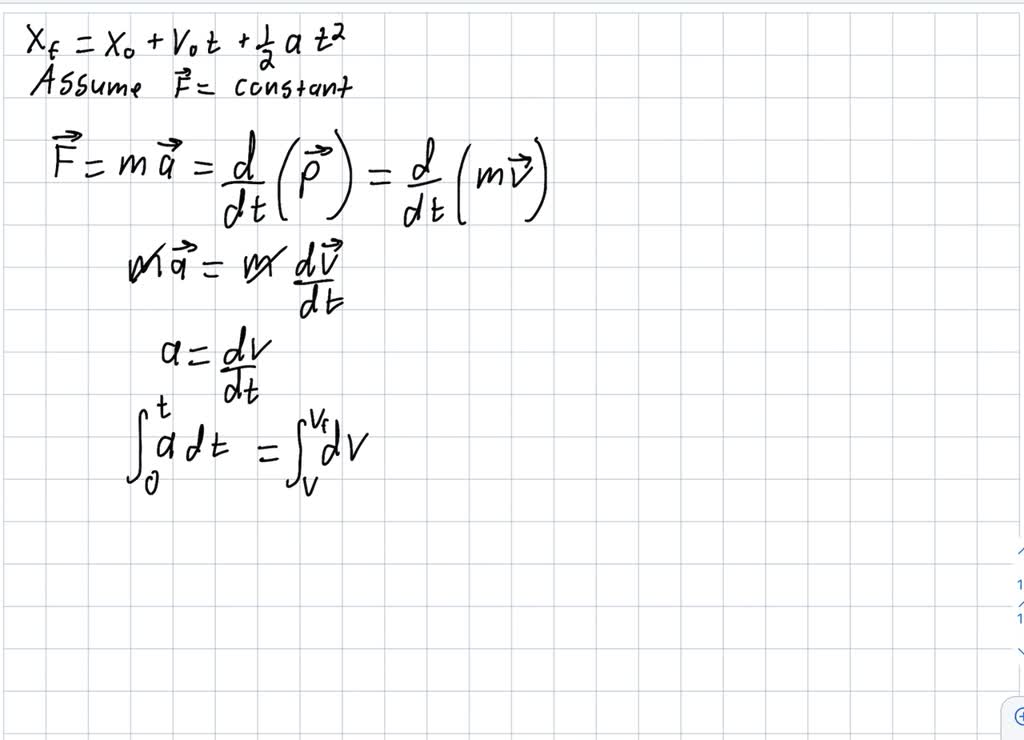 X_f = X_0 + V_0 t + 1/2 a t²
Assume F⃗ = constant
F⃗ = m a⃗ = d/dt (p⃗) = d/dt (m v⃗)
m a⃗ = m dv⃗/dt
a = dv/dt
∫_0^t a dt = ∫_V^{V_f} dV